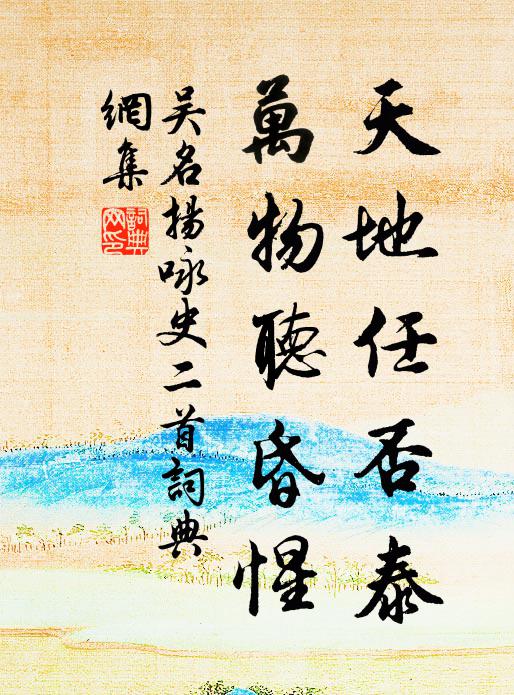 天地任否泰
萬物聽昏惺
吴名揚咏史二首詞典
網集
詞典
网印